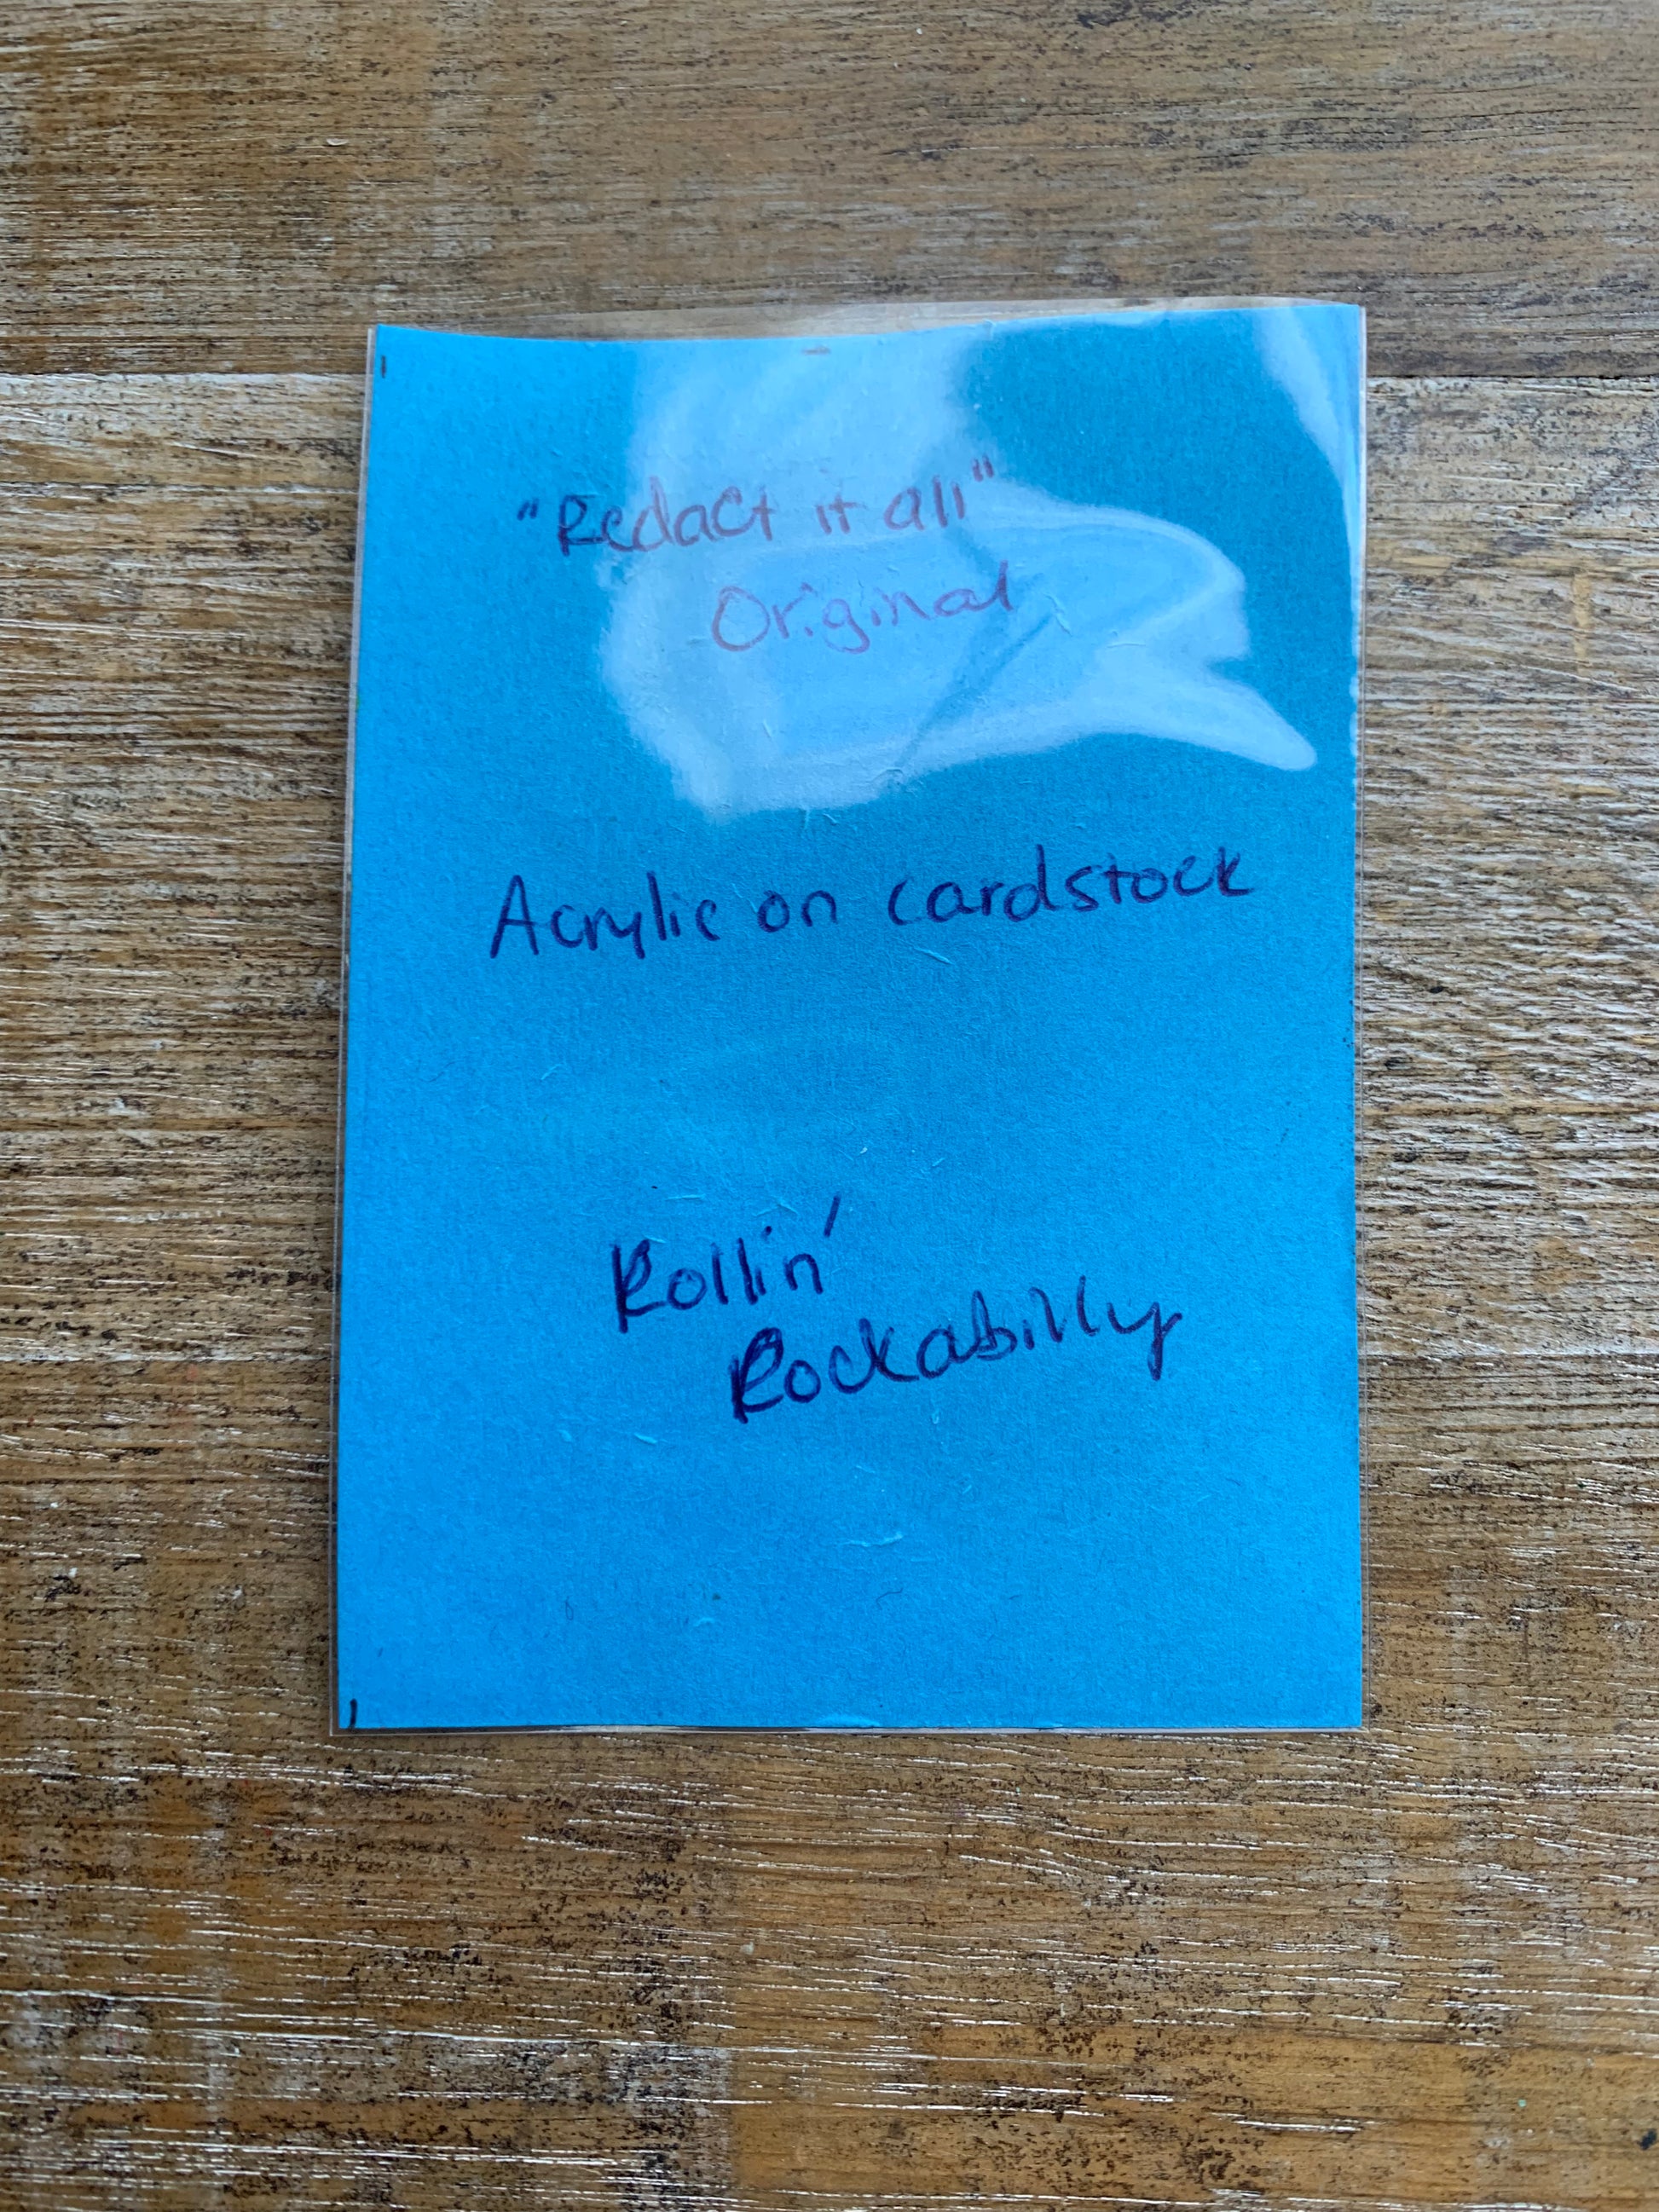 "Redact it all"
Original
Acrylic on cardstock
Rollin'
Rockabilly